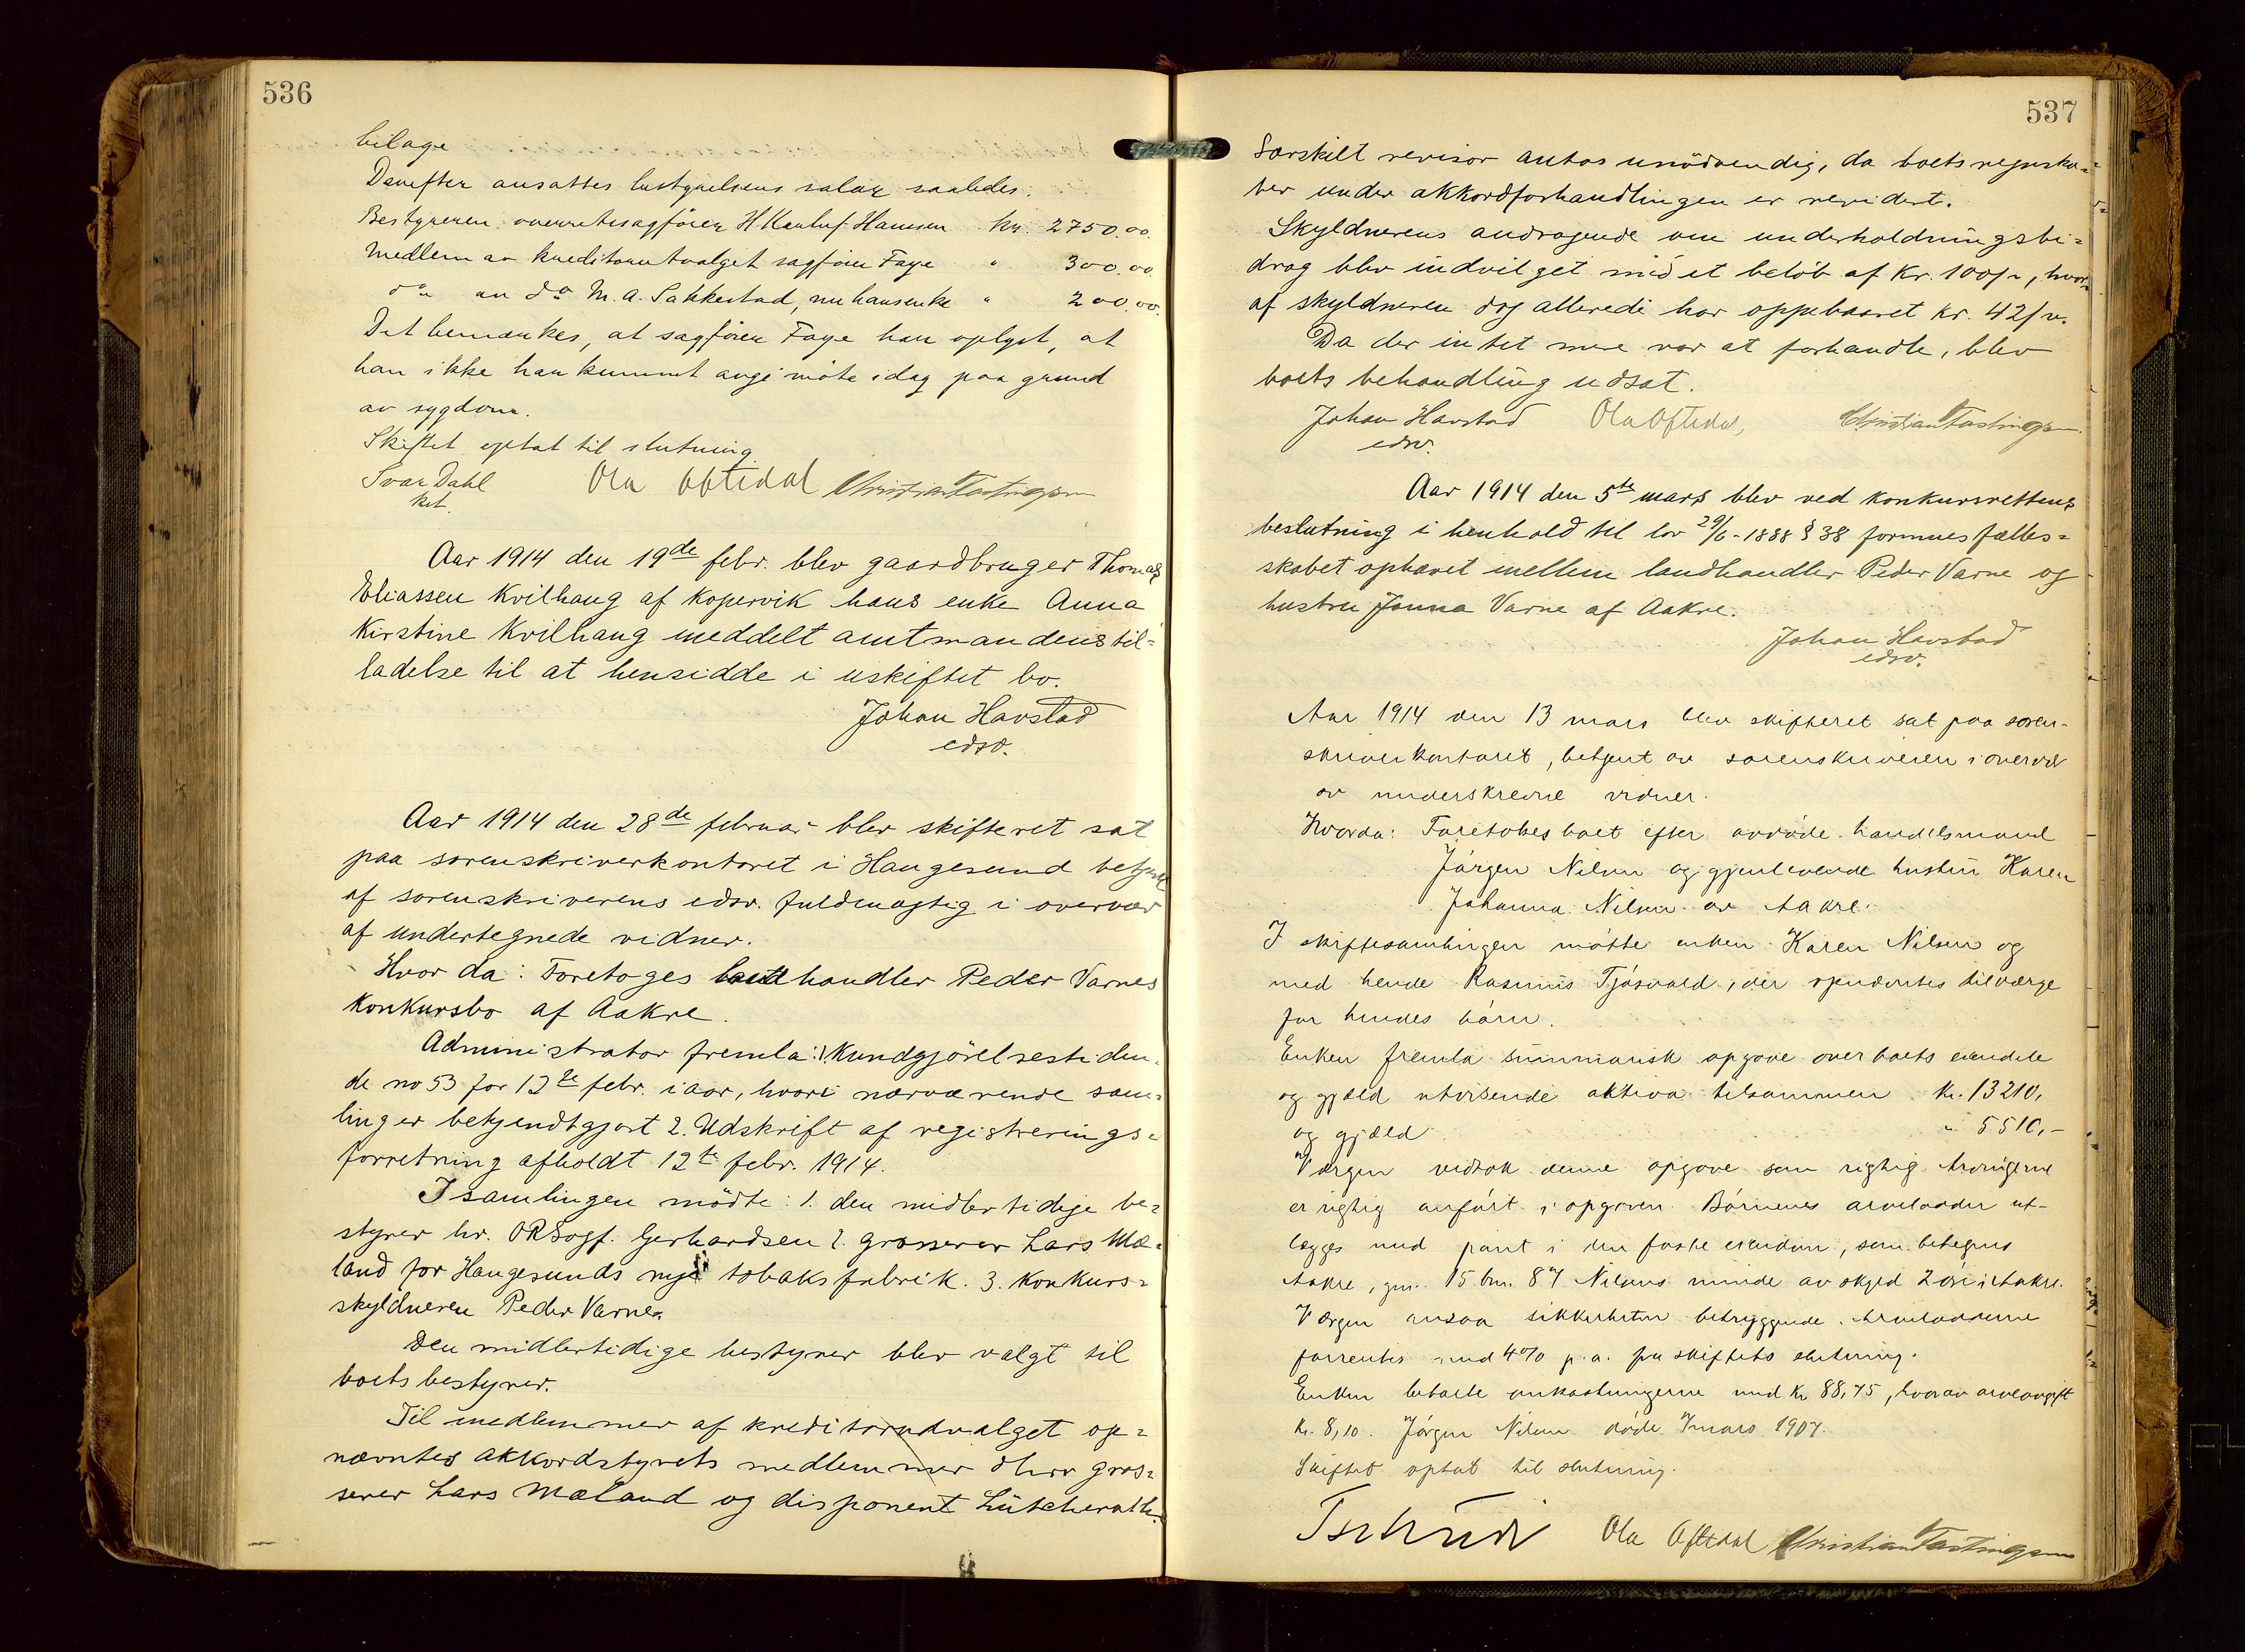 536
bilage
Derefter ansattes bestyrelsens salær saaledes:
Bestyreren overretssagfører H. Hansen kr. 2750.00
Medlem av kreditorutvalget sagfører Faye " 300.00
do av do M. A. Sakkestad, nu hans enke " 200.00.
Det bemærkes, at sagfører Faye har oplyst, at
han ikke har kunnet angi møte idag paa grund
av sygdom.
Skiftet optat til slutning
Ivar Dahl Ola Oftedal Christian Tastingsen
kst.
Aar 1914 den 19de febr. blev gaardbruger Thomas
Eliassen Kvilhaug af Kopervik hans enke Anna
Kirstine Kvilhaug meddelt amtmandens til=
ladelse til at hensidde i uskiftet bo.
Johan Havstad
edsv.
Aar 1914 den 28de februar blev skifteret sat
paa sorenskriverkontoret i Haugesund betjent
af sorenskriverens edsv. fuldmægtig i overvær
af undertegnede vidner.
Hvor da: Foretoges landhandler Peder Varnes
konkursbo af Aakre.
Administrator fremla: 1 Kundgjørelsestiden=
de no 53 for 12te febr. iaar, hvori nærværende sam=
linger bekjendtgjort 2. Udskrift af registrerings=
forretning afholdt 12te febr. 1914.
I samlingen mødte: 1. den midlertidige be=
styrer hr. ORSagf. Gerhardsen 2. grosserer Lars Mæ=
land for Haugesunds nye tobaksfabrik. 3. Konkurs=
skyldneren Peder Varne.
Den midlertidige bestyrer blev valgt til
boets bestyrer.
Til medlemmer af kreditorudvalget op=
nævntes akkordstyrets medlemmer dhrr gros=
serer Lars Mæland og disponent Lütcherath.
537
Særskilt revisor antas unødvendig, da boets regnska=
ber under akkordforhandlingen er revidert.
Skyldnerens andragende om underholdningsbi=
drag blev indvilget med et beløb af Kr. 100/-, hvor=
af skyldneren dog allerede har oppebaaret kr. 42/-.
Da der intet mere var at forhandle, blev
boets behandling udsat.
Johan Havstad Ola Oftedal, Christian Tastingsen
edsv.
Aar 1914 den 5te mars blev ved konkursrettens
beslutning i henhold til lov 29/6-1888 § 38 formuesfælles=
skabet ophævet mellem landhandler Peder Varne og
hustru Jonna Varne af Aakre.
Johan Havstad
edsv.
Aar 1914 den 13 mars blev skifteret sat paa soren-
skriverkontoret, betjent av sorenskriveren i overvær
av underskrevne vidner.
Hvorda: Foretokes boet efter avdøde handelsmand
Jørgen Nilsen og gjenlevende hustru Karen
Johanna Nilsen av Aakre.
I skiftesamlingen møtte enken Karen Nilsen og
med hende Rasmus Tjøsvold, der opnævntes til værge
for hendes børn.
Enken fremla summarisk opgave over boets eiendele
og gjæld utvisende aktiva tilsammen kr. 13210,
og gjæld " 5510,-
Værgen vedtok denne opgave som rigtig. Arvingerne
er rigtig anført i opgaven. Børnenes arvelodder ut-
lægges med pant i den faste eiendom, som betegnes
Aakre, gnr. 15 bnr. 87 Nilsens minde av skyld 2 øre i Aakre.
Værgen ansaa sikkerheten betryggende. Arveloddene
forrentes med 4% p.a. fra skiftets slutning.
Enken betalte omkostningerne med Kr. 88,75, hvorav arveavgift
Kr. 8,10. Jørgen Nilsen døde 7 mars 1907.
Skiftet optat til slutning.
Tschudi Ola Oftedal Christian Tastingsen